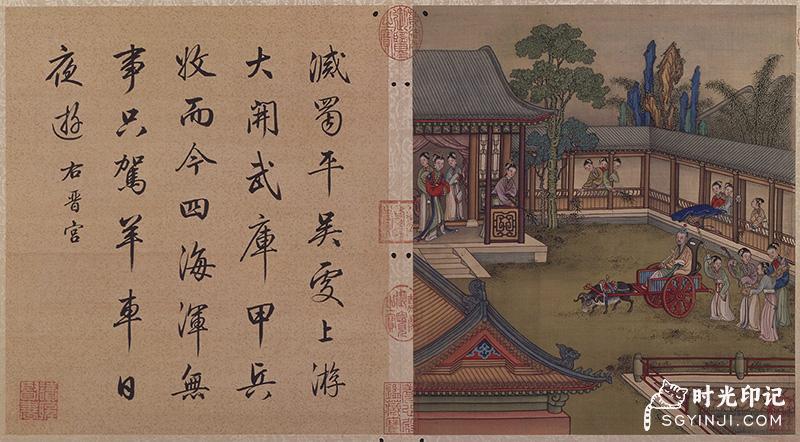 滅蜀平吳上游
大開武庫甲兵
收而今四海渾無
事只駕羊車日
夜遊 右晋宫
时光印记
SGYINJI.COM